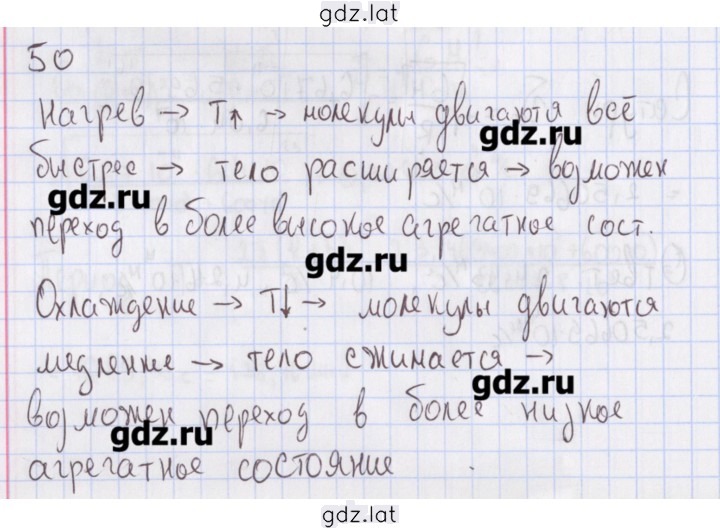 gdz.lat
50
Нагрев → T↑ → молекулы двигаются всё
gdz.ru
быстрее → тело расширяется → возможен
gdz.ru
переход в более высокое агрегатное сост.
gdz.ru
Охлаждение → T↓ → молекулы двигаются
медленние → тело сжимается →
gdz.ru
возможен переход в более низкое
gdz.ru
агрегатное состояние
gdz.lat